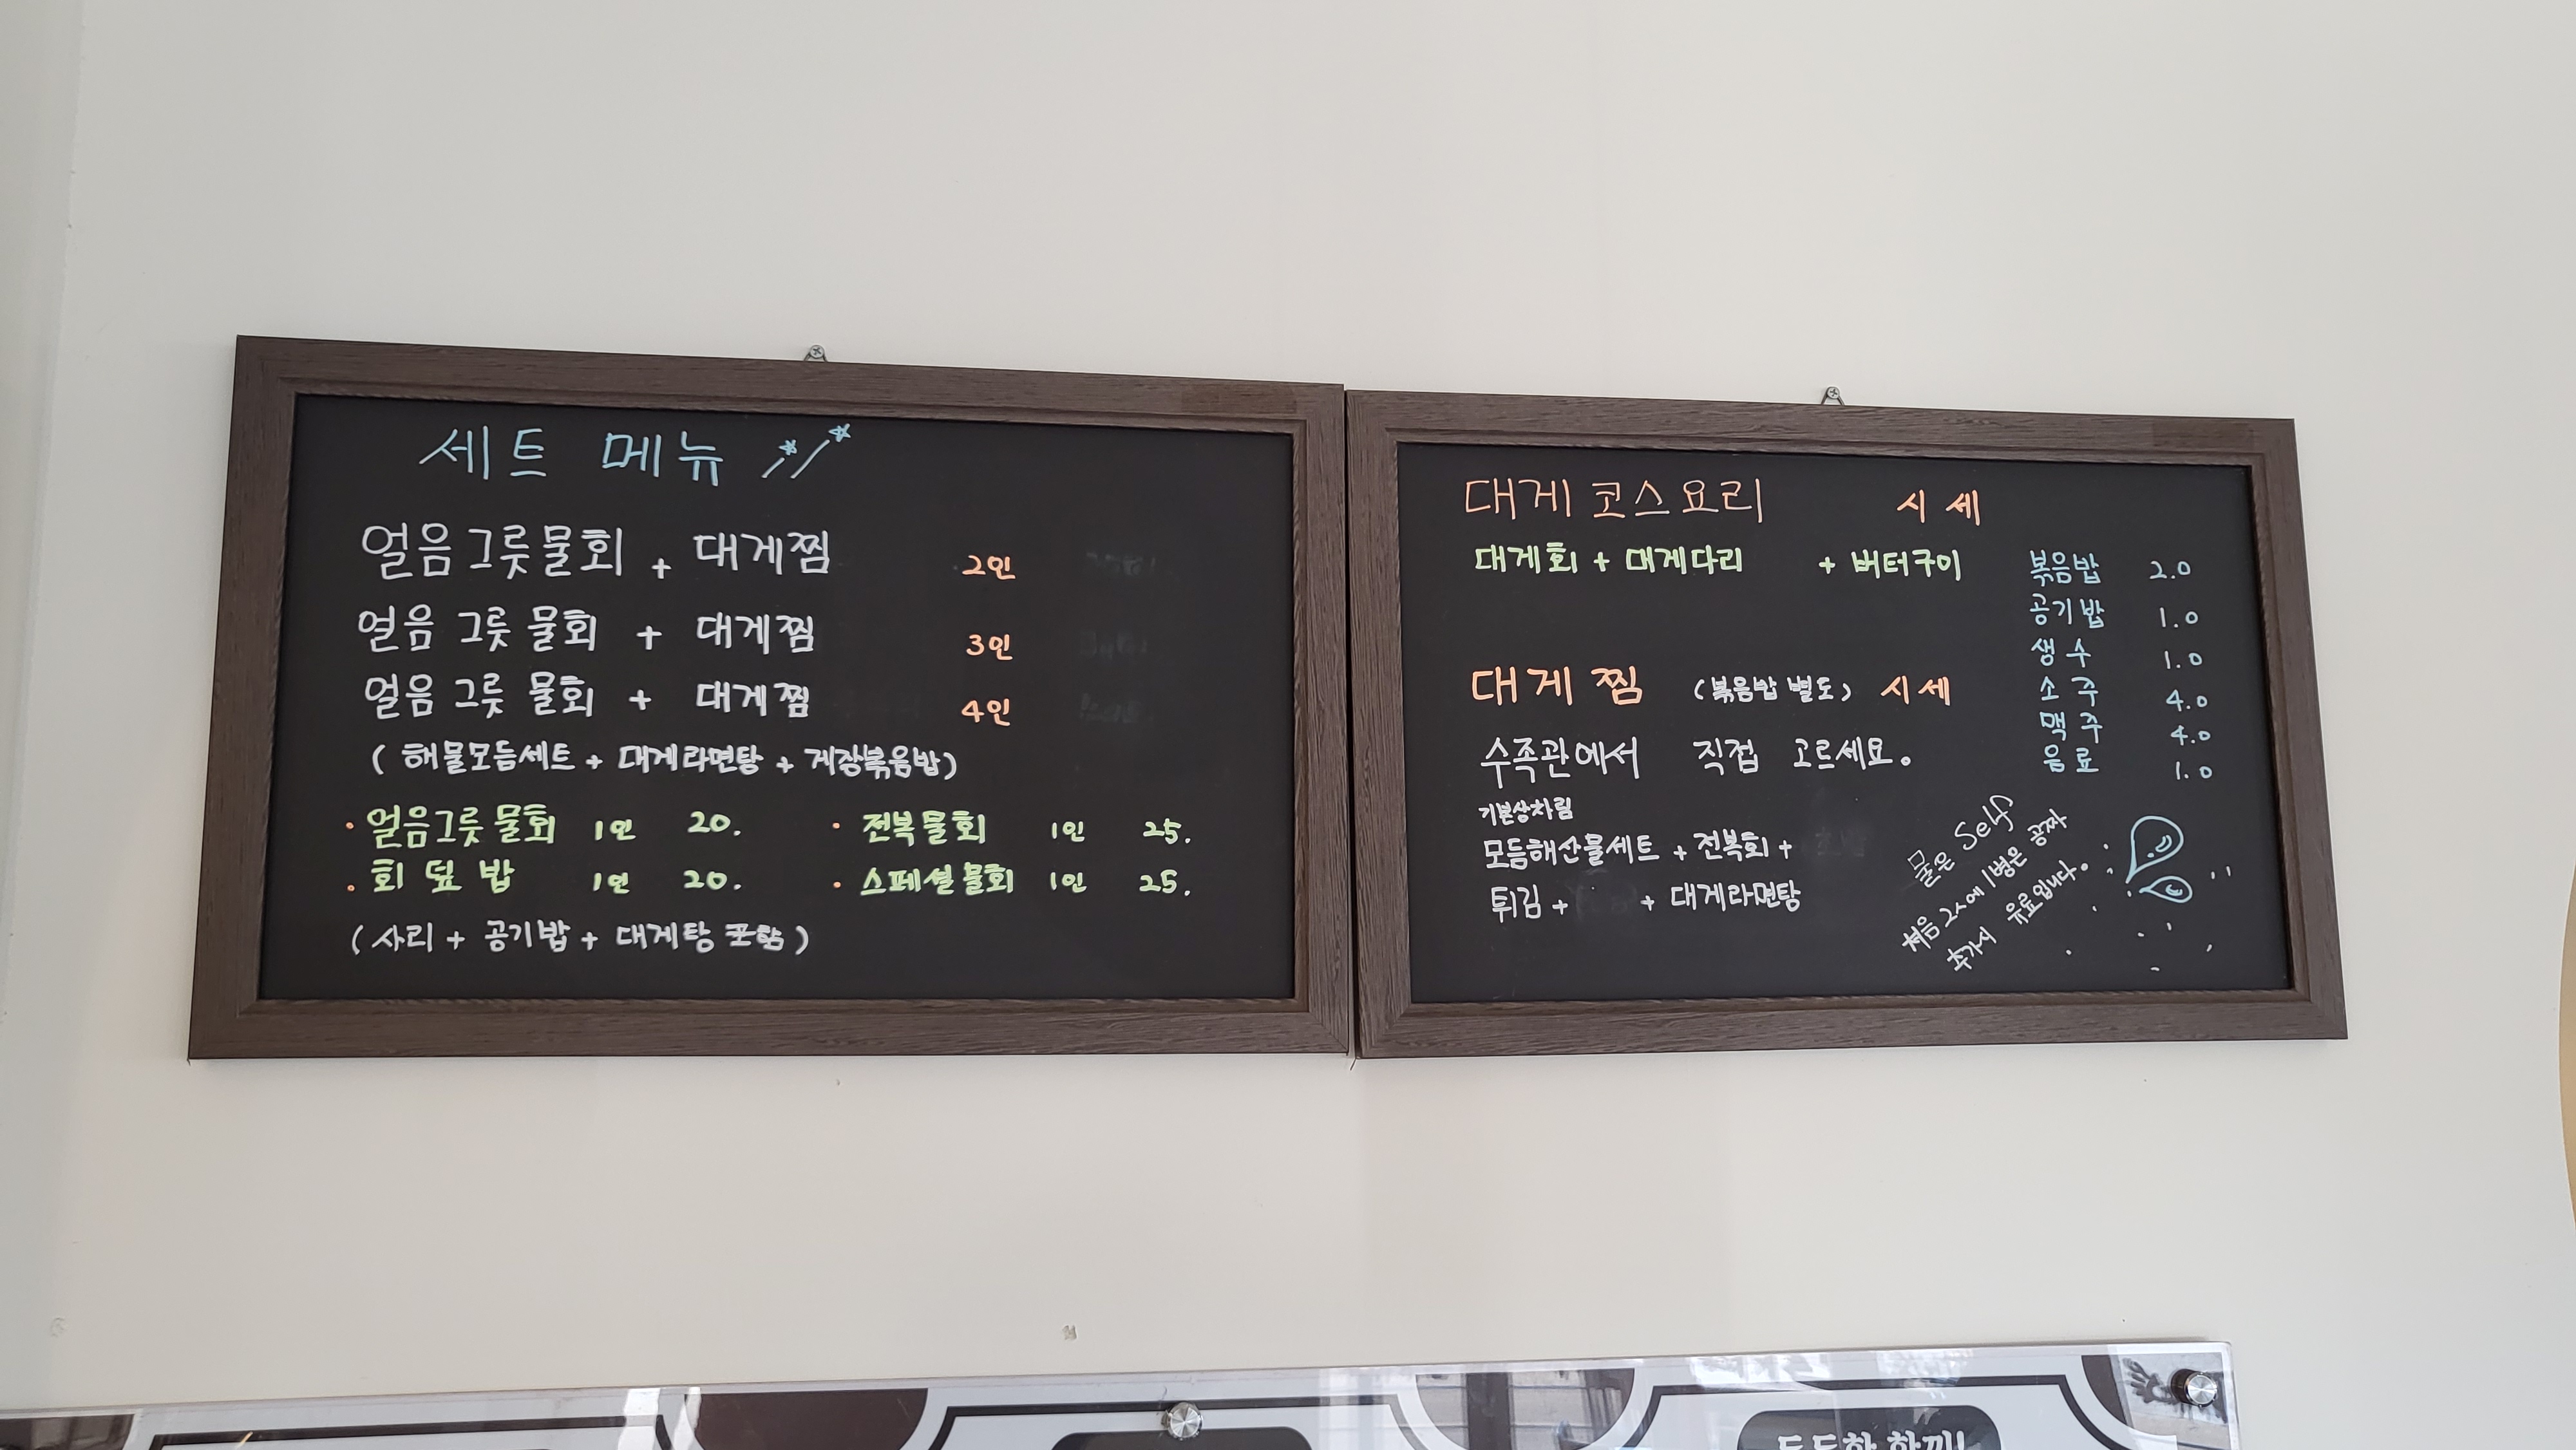 세트 메뉴
얼음그릇물회 + 대게찜 2인
얼음 그릇 물회 + 대게찜 3인
얼음 그릇 물회 + 대게찜 4인
( 해물모듬세트 + 대게라면탕 + 게장볶음밥)
· 얼음그릇 물회 1인 20. · 전복물회 1인 25.
· 회덮밥 1인 20. · 스페셜물회 1인 25.
( 사리 + 공기밥 + 대게탕 포함 )
대게 코스요리 시세
대게회 + 대게다리 + 버터구이
대게찜 (볶음밥 별도) 시세
수족관에서 직접 고르세요.
기본상차림
모듬해산물세트 + 전복회 +
튀김 + + 대게라면탕
볶음밥 2.0
공기밥 1.0
생수 1.0
소주 4.0
맥주 4.0
음료 1.0
물은 Self
처음 2人에 1병은 공짜
추가시 유료입니다.
든든한 한끼!